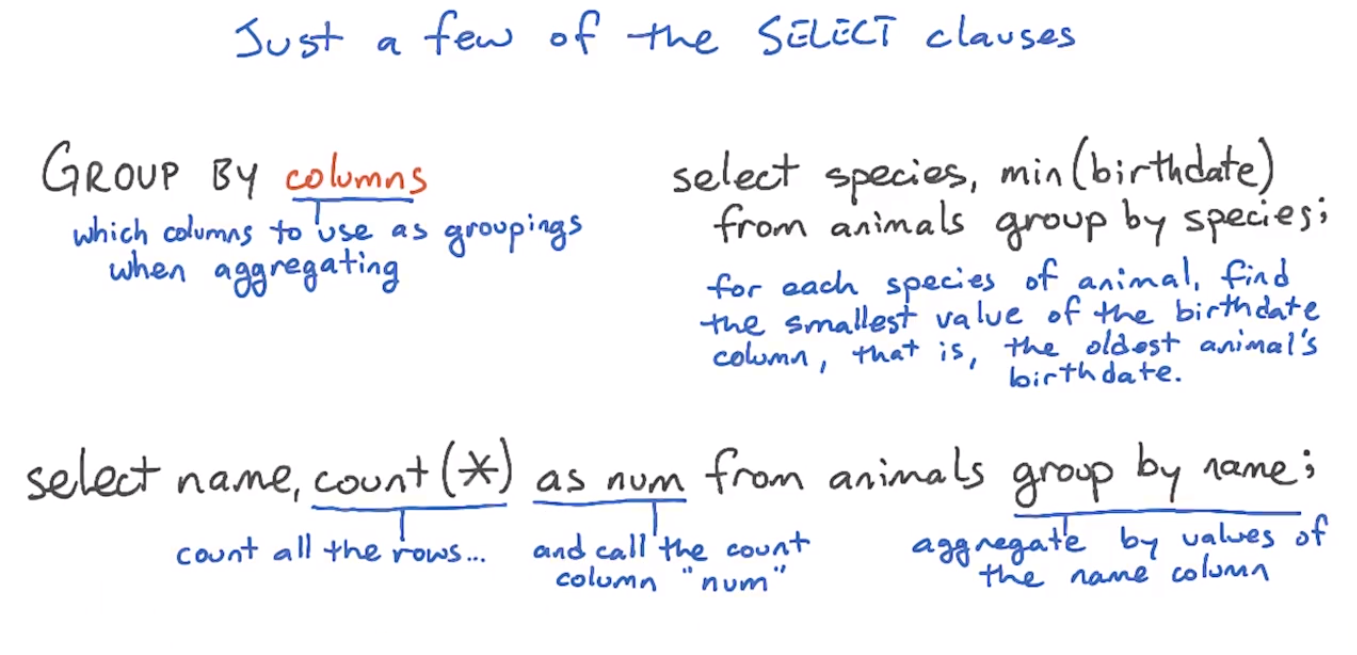 Just a few of the SELECT clauses
GROUP BY columns
which columns to use as groupings
when aggregating
select species, min(birthdate)
from animals group by species;
for each species of animal, find
the smallest value of the birthdate
column, that is, the oldest animal's
birthdate.
select name, count(*) as num from animals group by name;
count all the rows...
and call the count
column "num"
aggregate by values of
the name column